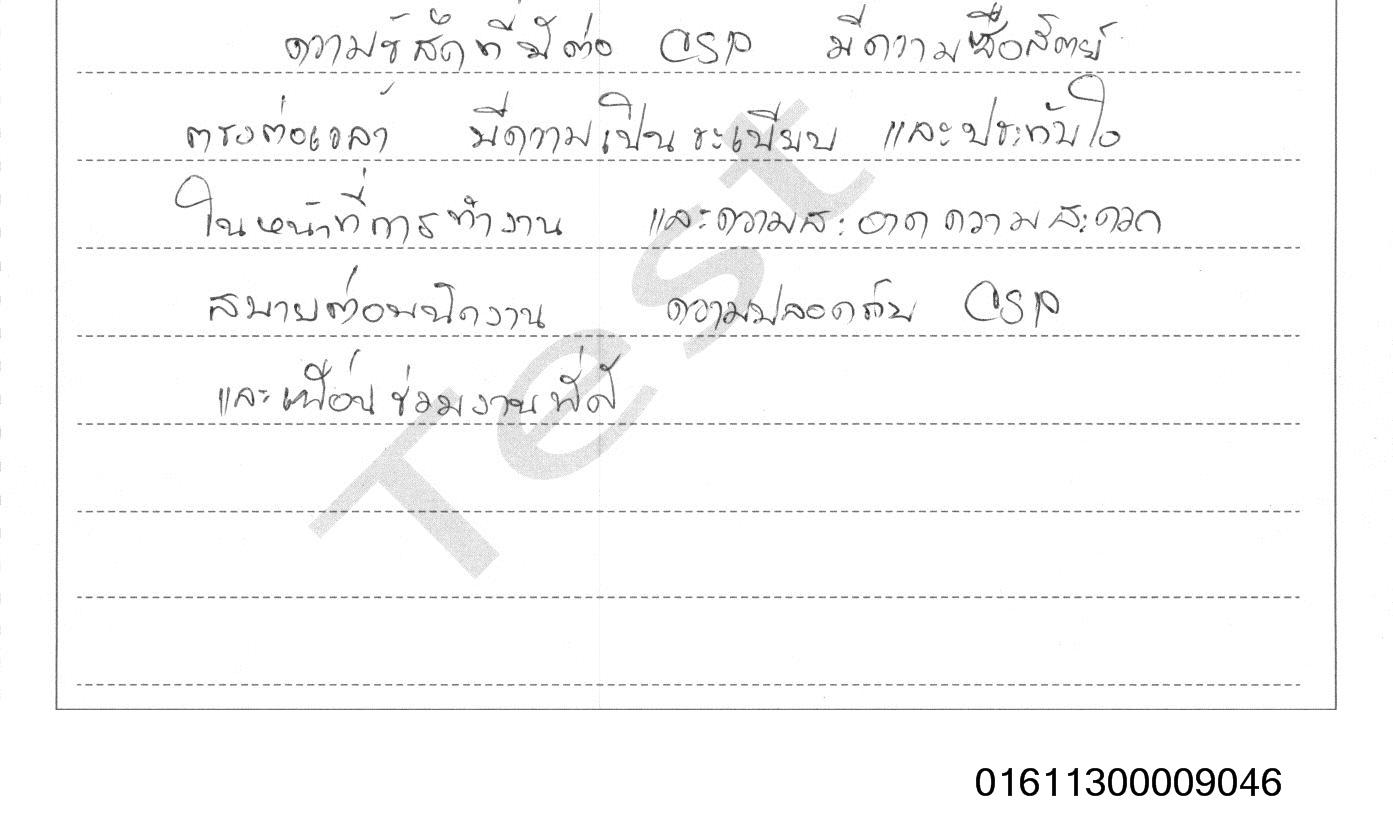 ความรู้สึกที่มีต่อ CSP มีความซื่อสัตย์
ตรงต่อเวลา มีความเป็นระเบียบ และประทับใจ
ในหน้าที่การทำงาน และความสะอาด ความสะดวก
สบายต่อพนักงาน ความปลอดภัย CSP
และเพื่อนร่วมงานที่ดี
Test
01611300009046